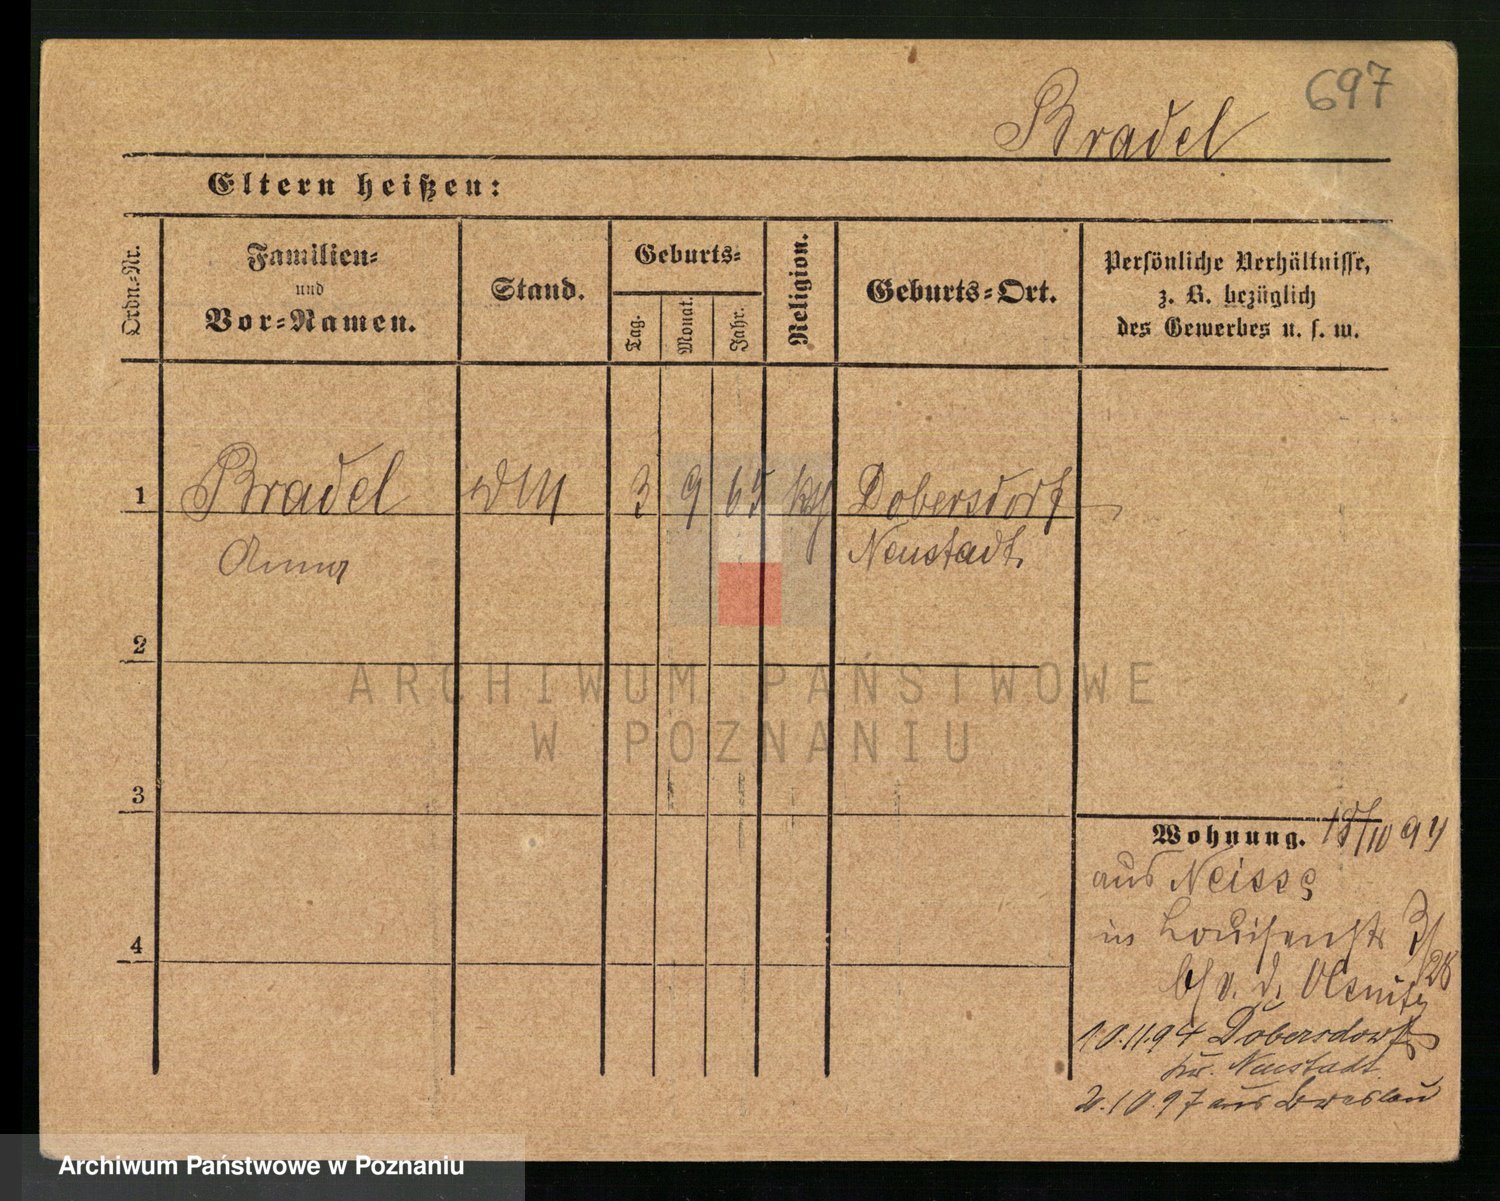 697
Bradel
Eltern heißen:
Ordn.-Nr.
Familien-
und
Vor-Namen.
Stand.
Geburts-
Tag.
Monat.
Jahr.
Religion.
Geburts-Ort.
Persönliche Verhältnisse,
z. B. bezüglich
des Gewerbes u. s. w.
1 Bradel DM 3 9 65 kth Dobersdorf
Anna Neustadt
2
ARCHIWUM PAŃSTWOWE
W POZNANIU
3
Wohnung. 18/10 94
aus Neisse
in Louisenstr 3/
28
b/ v. d.
4
10.11.94 Dobersdorf
Kr. Neustadt
2.10.97 aus Breslau
Archiwum Państwowe w Poznaniu